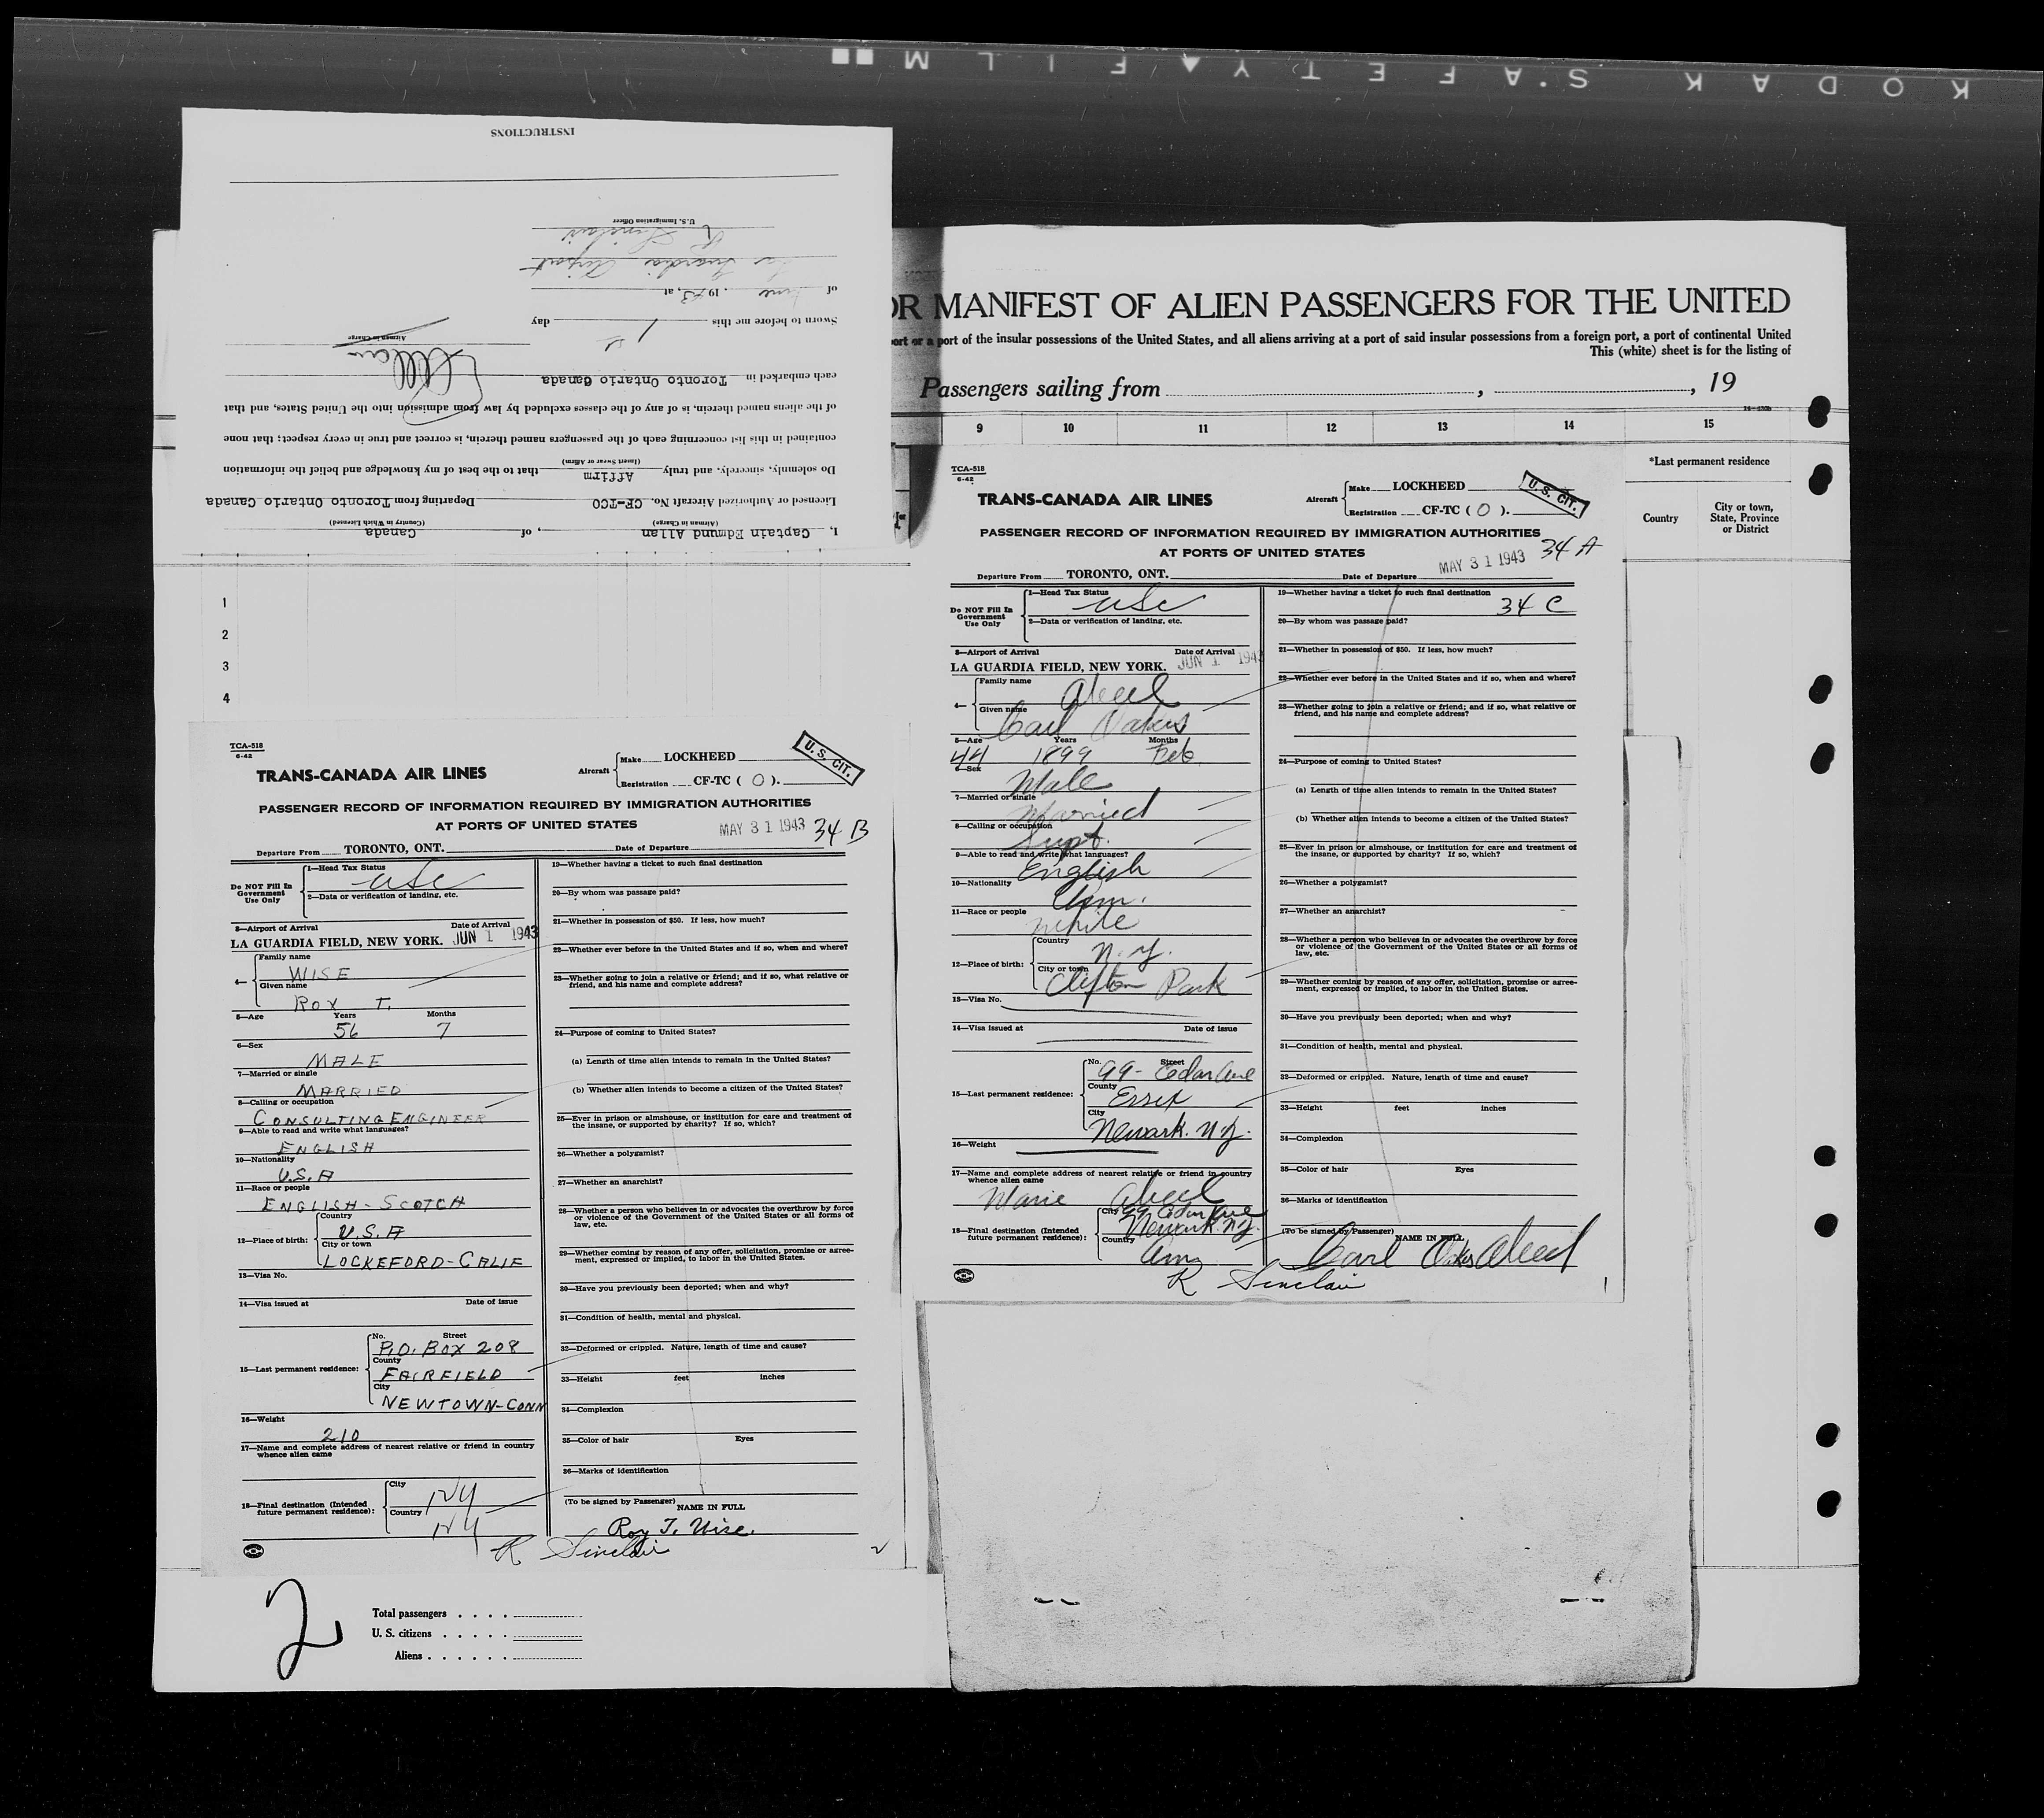 KODAK SAFETY FILM
INSTRUCTIONS
I, Captain Edmund Allan, of Canada
(Airman in Charge) (Country in Which Licensed)
Licensed or Authorized Aircraft No. CF-TCO Departing from Toronto Ontario Canada
Do solemnly, sincerely, and truly Affirm that to the best of my knowledge and belief the information
(Insert Swear or Affirm)
contained in this list concerning each of the passengers named therein, is correct and true in every respect; that none
of the aliens named therein, is of any of the classes excluded by law from admission into the United States, and that
each embarked in Toronto Ontario Canada
Allan
Airman in Charge
Sworn to before me this 1 day
of June, 1943, at
La Guardia Airport
R Sinclair
U.S. Immigration Officer
OR MANIFEST OF ALIEN PASSENGERS FOR THE UNITED
port or a port of the insular possessions of the United States, and all aliens arriving at a port of said insular possessions from a foreign port, a port of continental United
This (white) sheet is for the listing of
Passengers sailing from , , 19
9 10 11 12 13 14 15
*Last permanent residence
Country
City or town, State, Province or District
1
2
3
4
TCA-518
6-42
TRANS-CANADA AIR LINES
Aircraft
Make LOCKHEED
Registration CF-TC ( O ).
U. S. CIT.
PASSENGER RECORD OF INFORMATION REQUIRED BY IMMIGRATION AUTHORITIES
AT PORTS OF UNITED STATES
MAY 31 1943 34 B
Departure From TORONTO, ONT. Date of Departure
Do NOT Fill In Government Use Only
1—Head Tax Status
USC
2—Data or verification of landing, etc.
3—Airport of Arrival Date of Arrival
LA GUARDIA FIELD, NEW YORK. JUN 1 1943
4—
Family name
WISE
Given name
ROY T.
5—Age Years Months
56 7
6—Sex
MALE
7—Married or single
MARRIED
8—Calling or occupation
CONSULTING ENGINEER
9—Able to read and write what languages?
ENGLISH
10—Nationality
U.S.A
11—Race or people
ENGLISH-SCOTCH
12—Place of birth:
Country
U.S.A
City or town
LOCKEFORD-CALIF
13—Visa No.
14—Visa issued at Date of issue
15—Last permanent residence:
No. Street
P.O. BOX 208
County
FAIRFIELD
City
NEWTOWN-CONN
16—Weight
210
17—Name and complete address of nearest relative or friend in country
whence alien came
18—Final destination (Intended
future permanent residence):
City
NY
Country
NY
19—Whether having a ticket to such final destination
20—By whom was passage paid?
21—Whether in possession of $50. If less, how much?
22—Whether ever before in the United States and if so, when and where?
23—Whether going to join a relative or friend; and if so, what relative or
friend, and his name and complete address?
24—Purpose of coming to United States?
(a) Length of time alien intends to remain in the United States?
(b) Whether alien intends to become a citizen of the United States?
25—Ever in prison or almshouse, or institution for care and treatment of
the insane, or supported by charity? If so, which?
26—Whether a polygamist?
27—Whether an anarchist?
28—Whether a person who believes in or advocates the overthrow by force
or violence of the Government of the United States or all forms of
law, etc.
29—Whether coming by reason of any offer, solicitation, promise or agree-
ment, expressed or implied, to labor in the United States.
30—Have you previously been deported; when and why?
31—Condition of health, mental and physical.
32—Deformed or crippled. Nature, length of time and cause?
33—Height feet inches
34—Complexion
35—Color of hair Eyes
36—Marks of identification
(To be signed by Passenger) NAME IN FULL
Roy T. Wise.
R Sinclair
2
2
Total passengers
U. S. citizens
Aliens
TCA-518
6-42
TRANS-CANADA AIR LINES
Aircraft
Make LOCKHEED
Registration CF-TC ( O ).
U. S. CIT.
PASSENGER RECORD OF INFORMATION REQUIRED BY IMMIGRATION AUTHORITIES
AT PORTS OF UNITED STATES
MAY 31 1943 34 A
Departure From TORONTO, ONT. Date of Departure
Do NOT Fill In Government Use Only
1—Head Tax Status
USC
2—Data or verification of landing, etc.
3—Airport of Arrival Date of Arrival
LA GUARDIA FIELD, NEW YORK. JUN 1 1943
4—
Family name
Abeel
Given name
Carl Oakes
5—Age Years Months
44 1899 Feb.
6—Sex
Male
7—Married or single
Married
8—Calling or occupation
Supt.
9—Able to read and write what languages?
English
10—Nationality
Am.
11—Race or people
White
12—Place of birth:
Country
N.Y.
City or town
Clifton Park
13—Visa No.
14—Visa issued at Date of issue
15—Last permanent residence:
No. Street
99- Cedar Ave
County
Essex
City
Newark. N.J.
16—Weight
17—Name and complete address of nearest relative or friend in country
whence alien came
Marie Abeel
18—Final destination (Intended
future permanent residence):
City 99 Cedar Ave
Newark N.J.
Country
Am
19—Whether having a ticket to such final destination
34 C
20—By whom was passage paid?
21—Whether in possession of $50. If less, how much?
22—Whether ever before in the United States and if so, when and where?
23—Whether going to join a relative or friend; and if so, what relative or
friend, and his name and complete address?
24—Purpose of coming to United States?
(a) Length of time alien intends to remain in the United States?
(b) Whether alien intends to become a citizen of the United States?
25—Ever in prison or almshouse, or institution for care and treatment of
the insane, or supported by charity? If so, which?
26—Whether a polygamist?
27—Whether an anarchist?
28—Whether a person who believes in or advocates the overthrow by force
or violence of the Government of the United States or all forms of
law, etc.
29—Whether coming by reason of any offer, solicitation, promise or agree-
ment, expressed or implied, to labor in the United States.
30—Have you previously been deported; when and why?
31—Condition of health, mental and physical.
32—Deformed or crippled. Nature, length of time and cause?
33—Height feet inches
34—Complexion
35—Color of hair Eyes
36—Marks of identification
(To be signed by Passenger) NAME IN FULL
Carl Oakes Abeel
R Sinclair
1